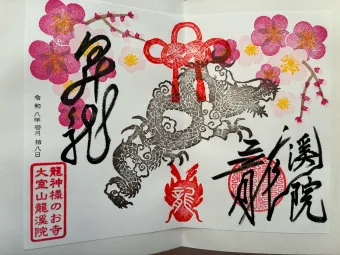 溪院
龍
昇龍
令和八年壱月拾八日
龍神様のお寺
山龍溪院